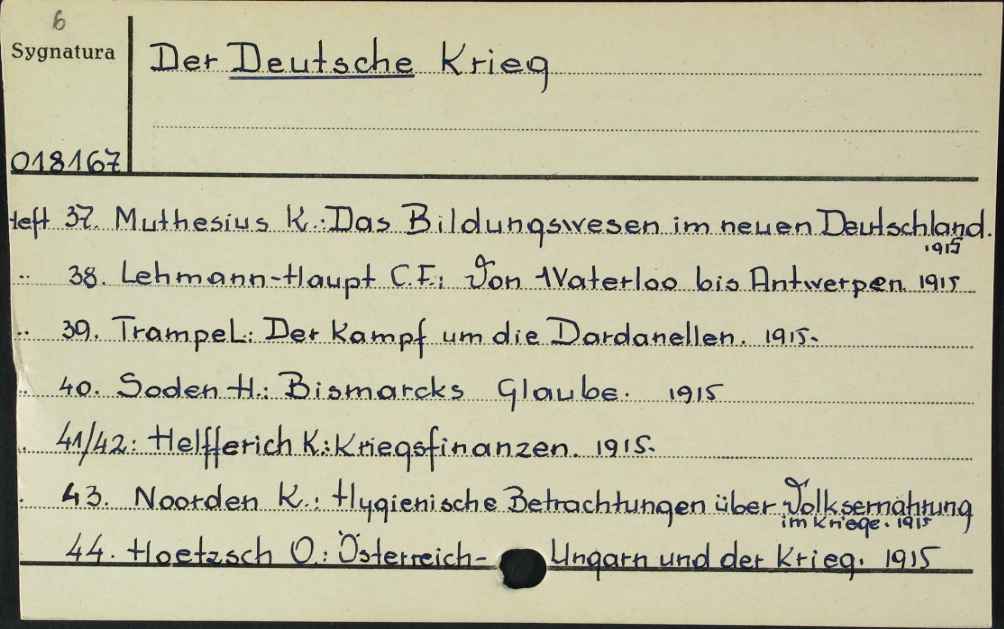 6
Sygnatura
Der Deutsche Krieg
018167
Heft 37. Muthesius K.: Das Bildungswesen im neuen Deutschland.
1915
.. 38. Lehmann-Haupt C.F.: Von Waterloo bis Antwerpen. 1915
.. 39. Trampe L.: Der Kampf um die Dardanellen. 1915.
.. 40. Soden H.: Bismarcks Glaube. 1915
.. 41/42: Helfferich K.: Kriegsfinanzen. 1915.
. 43. Noorden K.: Hygienische Betrachtungen über Volksernährung
im Kriege. 1915
44. Hoetzsch O.: Österreich- Ungarn und der Krieg. 1915